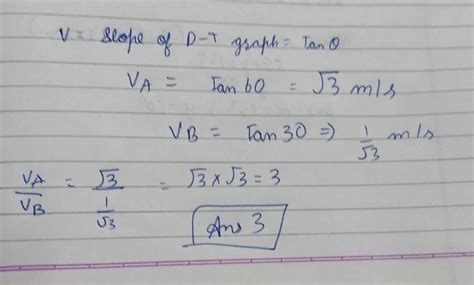 V = Slope of D-T graph = Tan θ
V_A = Tan 60 = √3 m/s
V_B = Tan 30 ⇒ 1/√3 m/s
V_A/V_B = √3/(1/√3) = √3 × √3 = 3
Ans 3